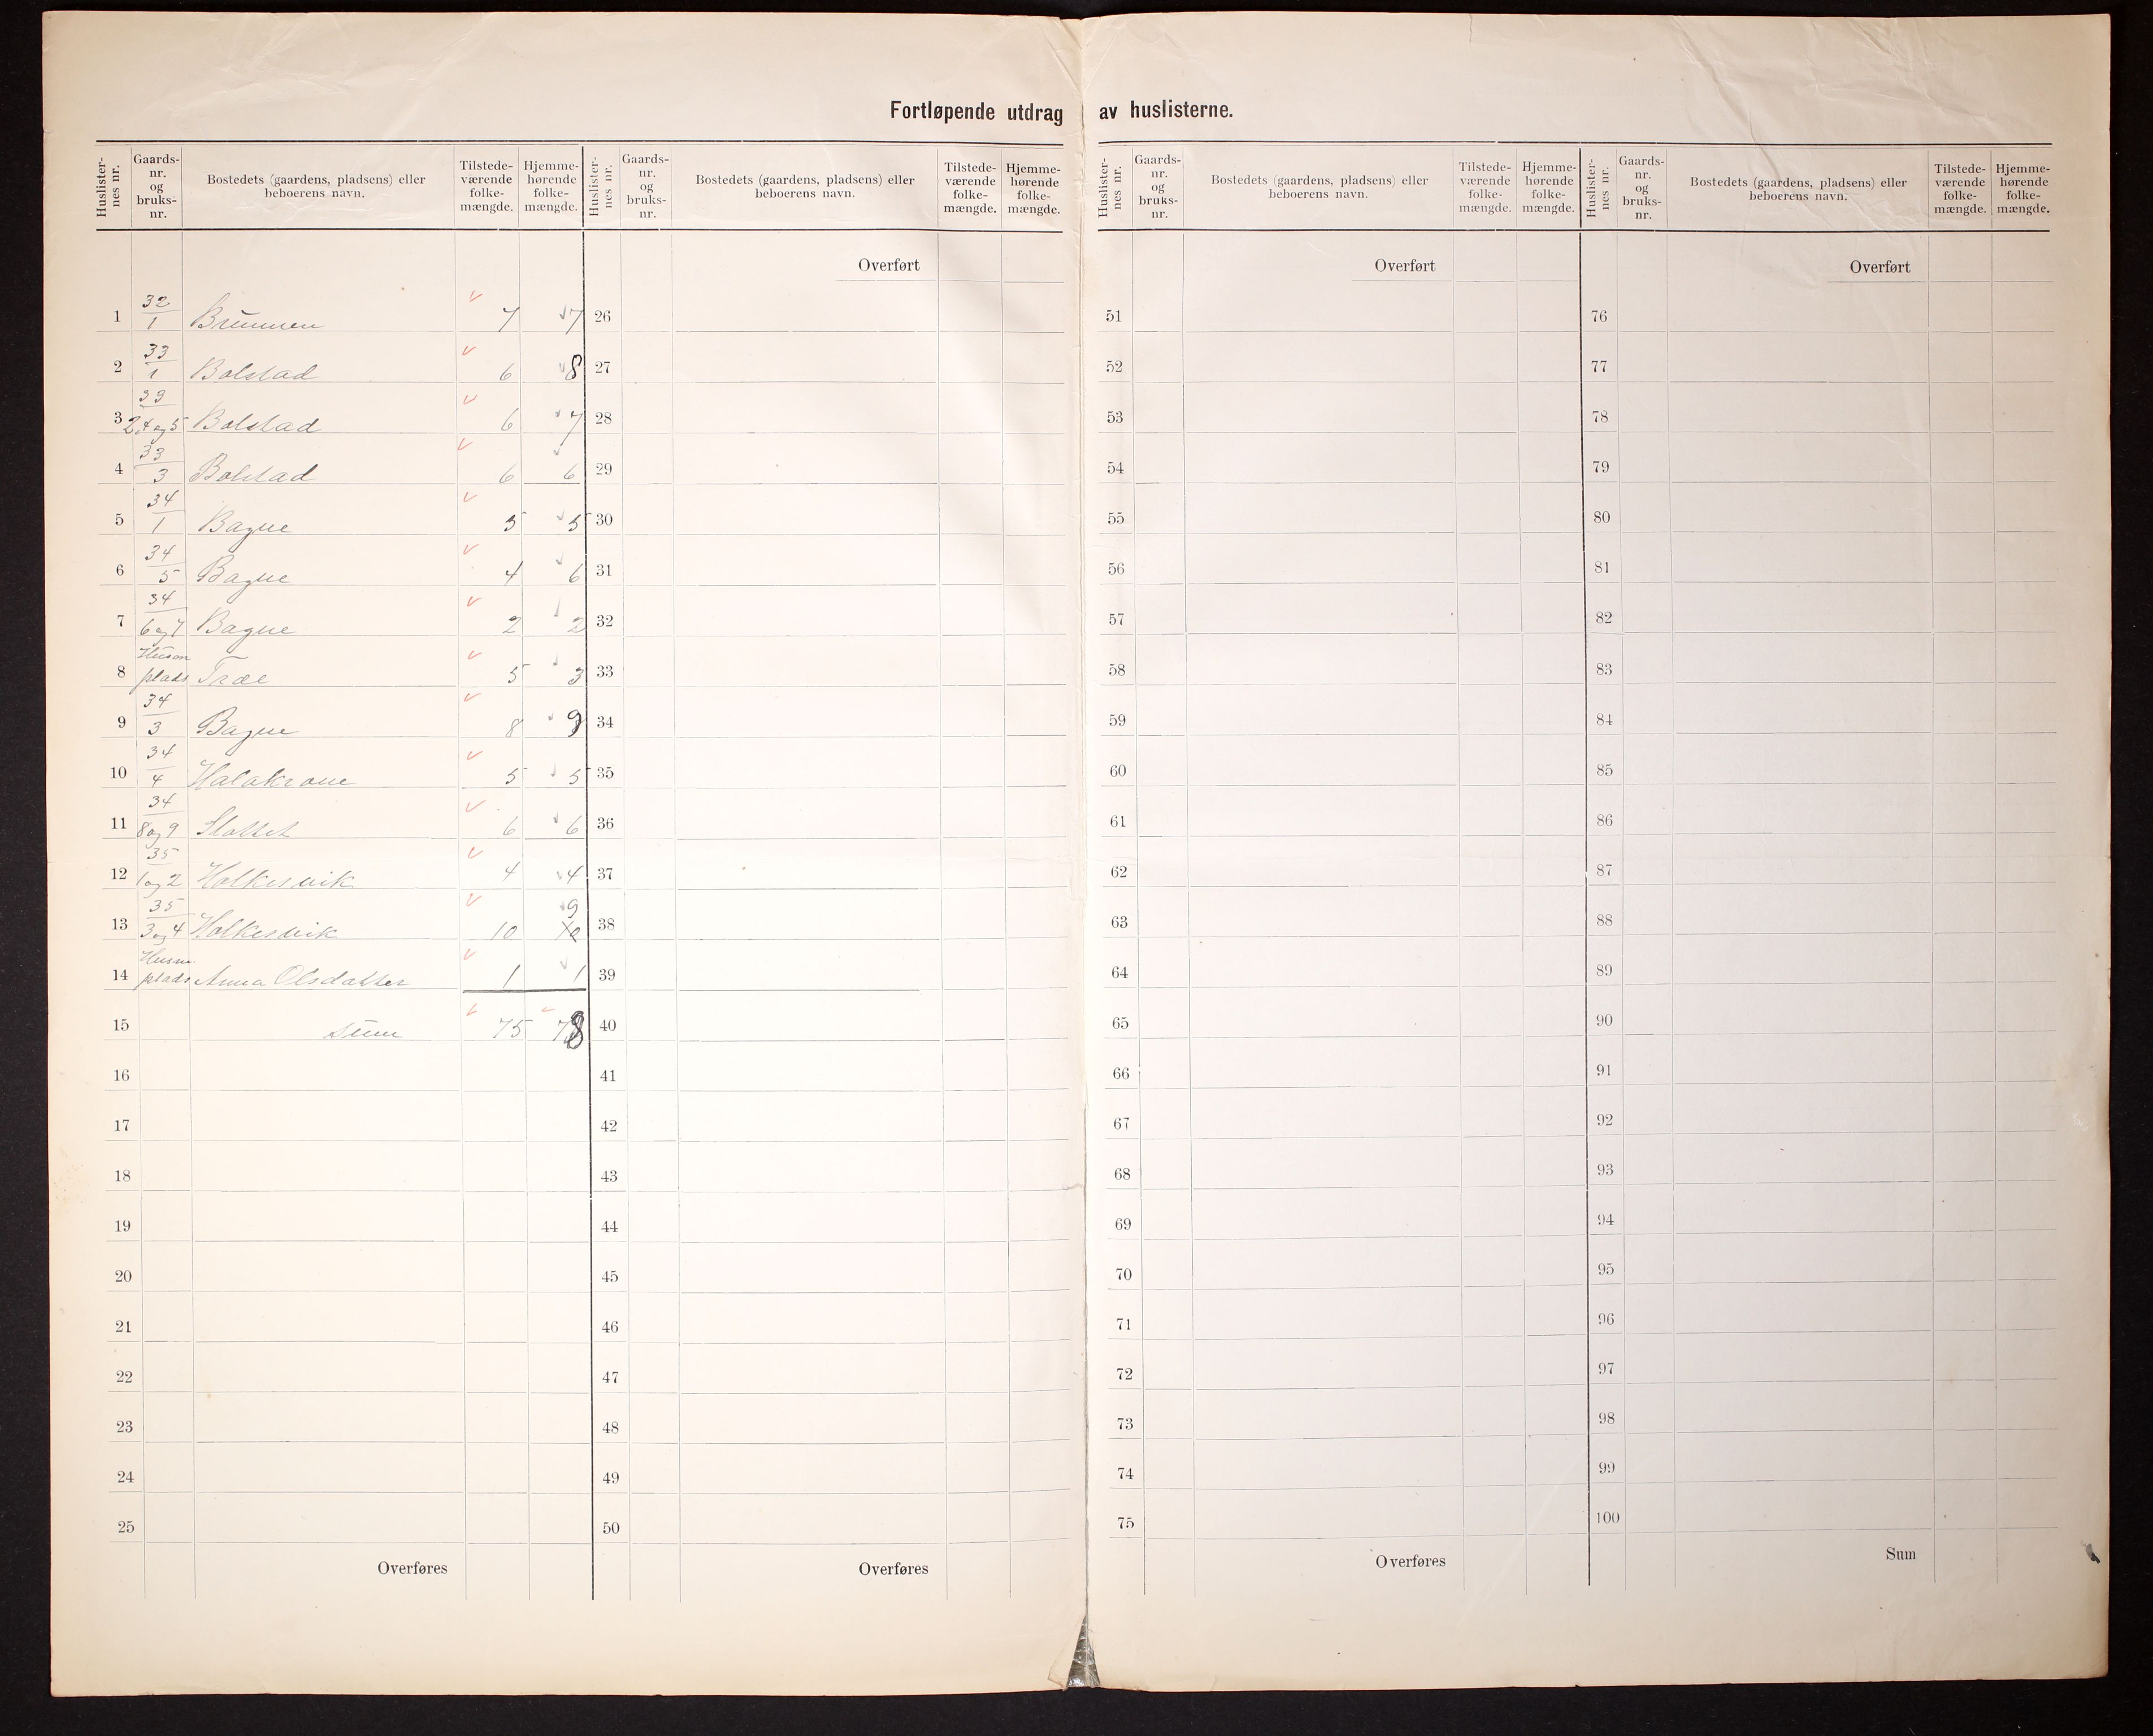 Fortløpende utdrag av huslisterne.
Huslisternes nr. Gaards-nr. og bruks-nr. Bostedets (gaardens, pladsens) eller beboerens navn. Tilstede-værende folke-mængde. Hjemme-hørende folke-mængde.
Huslisternes nr. Gaards-nr. og bruks-nr. Bostedets (gaardens, pladsens) eller beboerens navn. Tilstede-værende folke-mængde. Hjemme-hørende folke-mængde.
Huslisternes nr. Gaards-nr. og bruks-nr. Bostedets (gaardens, pladsens) eller beboerens navn. Tilstede-værende folke-mængde. Hjemme-hørende folke-mængde.
Huslisternes nr. Gaards-nr. og bruks-nr. Bostedets (gaardens, pladsens) eller beboerens navn. Tilstede-værende folke-mængde. Hjemme-hørende folke-mængde.
1 32/1 7 7
2 33/1 Bolstad 6 8
3 2 4 og 5 Bolstad 6 7
4 33/3 Bolstad 6 6
5 34/1 Bague 5 5
6 34/5 Bague 4 6
7 34/6 og 7 Bague 2 2
8 plads Træe 5 3
9 34/3 Bague 8 9
10 34/4 5 5
11 34/8 og 9 6 6
12 35/1 og 2 Holkesvik 4 4
13 35/3 og 4 Holkesvik 10 9
14 Husm plads Anna Olsdatter 1 1
15 Sum 75 78
16
17
18
19
20
21
22
23
24
25
Overføres
Overført
26
27
28
29
30
31
32
33
34
35
36
37
38
39
40
41
42
43
44
45
46
47
48
49
50
Overføres
Overført
51
52
53
54
55
56
57
58
59
60
61
62
63
64
65
66
67
68
69
70
71
72
73
74
75
Overføres
Overført
76
77
78
79
80
81
82
83
84
85
86
87
88
89
90
91
92
93
94
95
96
97
98
99
100
Sum